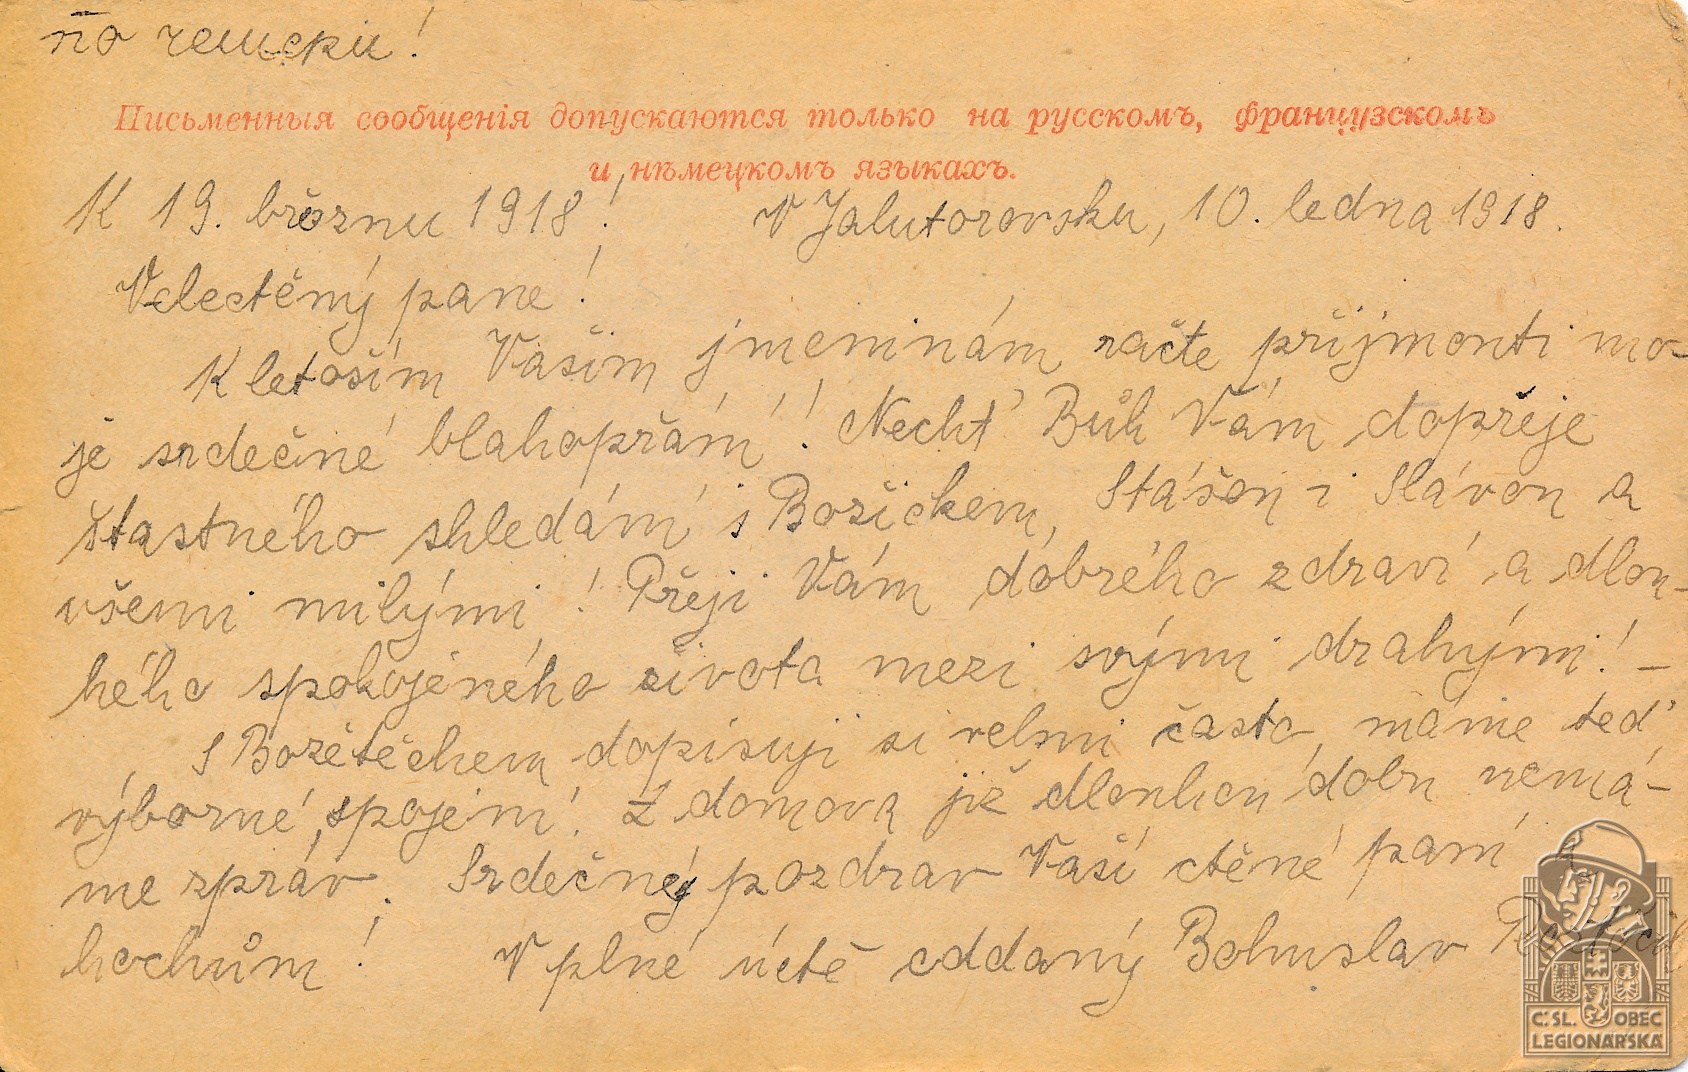 по чешски!
Письменныя сообщенія допускаются только на русскомъ, французскомъ
и нѣмецкомъ языкахъ.
K 19. březnu 1918! V Jalutorovsku, 10. ledna 1918.
Velectěný pane!
K letoším Vašim jmeninám račte přijmouti mo-
je srdečné blahopřání! Nechť Bůh Vám dopřeje
šťastného shledání s Božíčkem, Stášou i Slávou a
všemi milými! Přeji Vám dobrého zdraví a dlou-
hého spokojeného života mezi svými drahými! –
S Božetěchem dopisuji si velmi často, máme teď
výborné spojení! Z domova již dlouhou dobu nemá-
me zpráv. Srdečný pozdrav Vaší ctěné paní a
hochům! V plné úctě oddaný Bohuslav
Č. SL. OBEC
LEGIONÁŘSKÁ